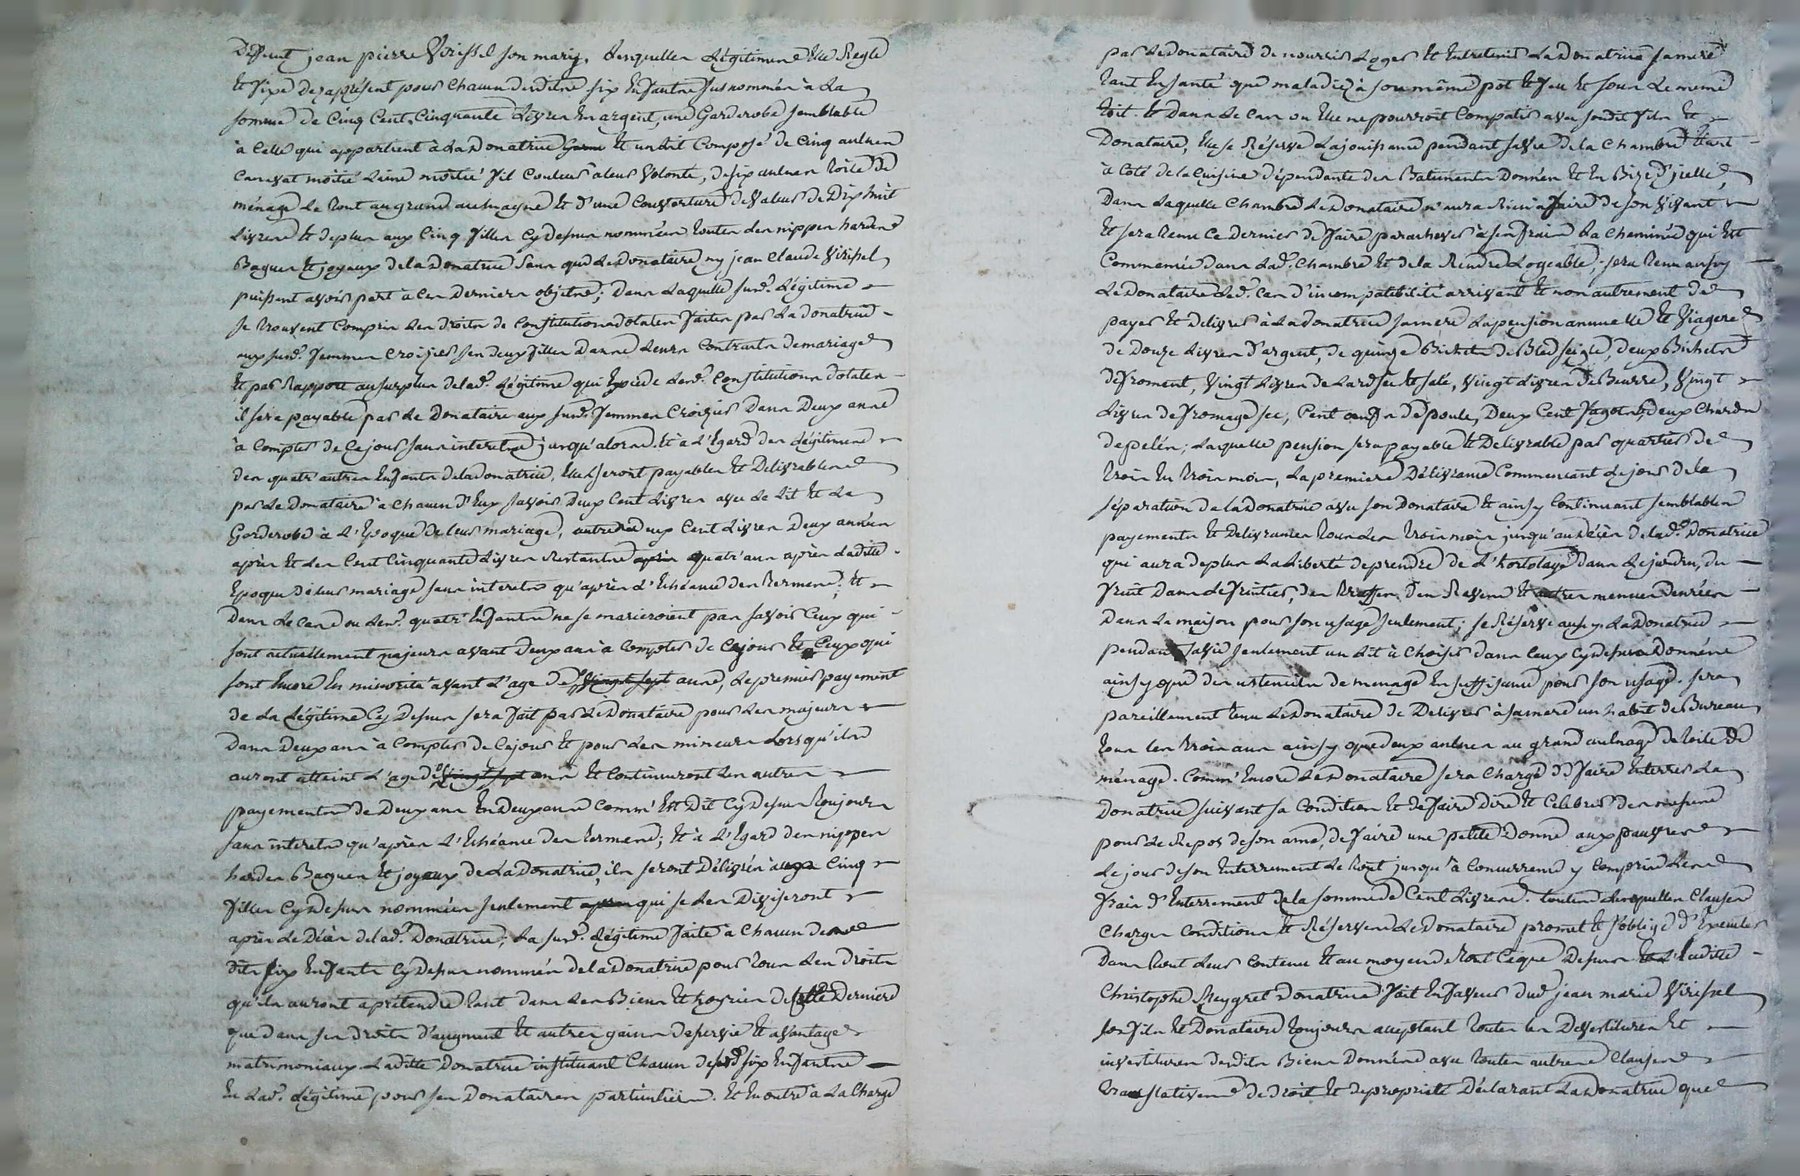 Deffunt jean pierre Virissel son mary, lesquelles Légitimes Elle Regle
Et fixe dezaprésent pour Chacun desdits six Enfants susnommés à La
somme de Cinq Cent Cinquante Livres En argent, une Garderobe semblable
à Celle qui appartient à La Donatrice Et un Lit Composé de Cinq aulnes
Canevat moitié Laine moitié fil Couleur à leur Volonté, de six aulnes toile de
ménage Le tout au grand aulnage Et d'une Couverture de Valeur de Dix huit
Livres Et de plus aux Cinq filles Cy Dessus nommées toutes Les nippes hardes
Bagues Et joyaux de La Donatrice sans que Le Donataire ny jean Claude Virissel
puissent avoir part à Ces Derniers objets; Dans Laquelle susd.e Légitime
se trouvent Compris Les droits de Constitutions dotales faites par La Donatrice
aux susd.es femmes Croizier ses deux filles Dans Leurs Contracts de mariage
Et par Rapport au surplus de lad.e Légitime qui Excède Lesd.es Constitutions dotales
il sera payable par Le Donataire aux susd.es femmes Croizier Dans Deux ans
à Compter de Ce jour sans interets jusqu'alors. Et à L'Egard des Légitimes
des quatre autres Enfants de La Donatrice, Elles seront payables Et Delivrables
par Le Donataire à Chacun D'Eux savoir Deux Cent Livres avec Le Lit Et La
Garderobe à L'Epoque De leur mariage, autres deux Cent Livres Deux années
après Et Les Cent Cinquante Livres Restantes quatr'ans après Laditte
Epoque de leur mariage sans interets qu'après L'Echéance des termes; Et
Dans Le Cas ou Lesd.s quatr'Enfants ne se marieroient pas savoir Ceux qui
sont actuellement majeurs avant Deux ans à Compter de Ce jour Et Ceux qui
sont Encore En minorité avant L'age de Vingt sept ans, Le premier payement
de La Légitime Cy Dessus sera fait par Le Donataire pour Les majeurs
Dans Deux ans à Compter de Ce jour Et pour Les mineurs Lorsqu'ils
auront atteint L'age de Vingt sept ans Et Continueront Les autres
payements de Deux ans En deux ans Comm' Est Dit Cy Dessus toujours
sans interets qu'après L'Echéance des termes; Et à L'Egard des nippes
hardes Bagues Et joyaux de La Donatrice, ils seront Délivrés aux Cinq
filles Cy Dessus nommées seulement qui se Les Diviseront
après Le Décès de lad.e Donatrice; La susd.e Légitime faite à Chacun des
Dits six Enfants Cy Dessus nommés de La Donatrice pour tous Les droits
qu'ils auront à prétendre tant dans Les Biens Et hoyries de Cette Derniere
que dans ses droits d'augment Et autres gains de survie Et avantages
matrimoniaux Laditte Donatrice instituant Chacun desd.s six Enfants
En Lad.e Légitime pour ses Donataires particuliers. Et En outre à La Charge
par Le Donataire de nourrir Loger Et Entretenir La Donatrice sa mere
tant En santé que maladie à son même pot Et feu Et sous Le même
toit. Et Dans Le Cas ou Elle ne pourroit Compatir avec sondit fils Et
Donataire, Elle se Réserve La jouissance pendant sa vie de La Chambre
à Coté de La Cuisine dépendante des Batiments Donnés Et En Bize d'icelle,
Dans Laquelle Chambre Le Donataire n'aura Rien à faire de son Vivant
Et sera tenu Ce Dernier de faire parachever à ses frais La Cheminée qui Est
Commencée Dans Lad.e Chambre Et de la Rendre Logeable; sera tenu aussy
Le Donataire Led.t Cas d'incompatibilité arrivant Et non autrement de
payer Et delivrer à La Donatrice sa mere La pension annuelle Et Viagere
de Douze Livres d'argent, de quinze Bichets de Bled seigle, deux Bichets
de froment, Vingt Livres de Lard sec Et salé, Vingt Livres de Beurre, Vingt
Livres de fromage sec, Cent œufs de poule, Deux Cent fagots, deux Chards
; Laquelle pension sera payable Et Delivrable par quartier de
trois En trois mois, La premiere Délivrance Commencant Le jour de la
séparation de La Donatrice avec son Donataire Et ainsy Continuant semblables
payements Et Delivrances tous Les trois mois jusqu'au Décès de lad.e Donatrice
qui aura de plus La Liberté de prendre de L'hortolage Dans Le jardin, du
fruit Dans Le fruitier, des Des Raves Et autres menues denrées
Dans La maison pour son usage seulement; se Réserve aussy La Donatrice
pendant sa vie seulement un Lit à Choisir dans Ceux Cy Dessus Donnés
ainsy que des ustenciles de menage En suffisance pour son usage. sera
pareillement tenu Le Donataire de Delivrer à sa mere un habit de Bureau
tous les trois ans ainsy que deux aulnes au grand aulnage de toile de
ménage. Comm' Encore Le Donataire sera Chargé de faire Enterrer La
Donatrice suivant sa Condition Et de faire Dire Et Celebrer des messes
pour Le Repos de son ame, de faire une petite Donne aux pauvres
Le jour de son Enterrement Le tout jusqu'à Concurrence y Compris Les
frais d'Enterrement de La somme de Cent Livres. toutes Lesquelles Clauses
Charges Conditions Et Réserves Le Donataire promet Et s'oblige d'Executer
Dans tout Leur Contenu Et au moyen de tout Ce que Dessus Laditte
Christophe Meygret Donatrice s'est En faveur dud.t jean marie Virissel
son fils Et Donataire toujours acceptant toutes Les Devestitures Et
investitures desdits Biens Donnés avec toutes autres Clauses
translatives de droit Et de propriété Déclarant La Donatrice que